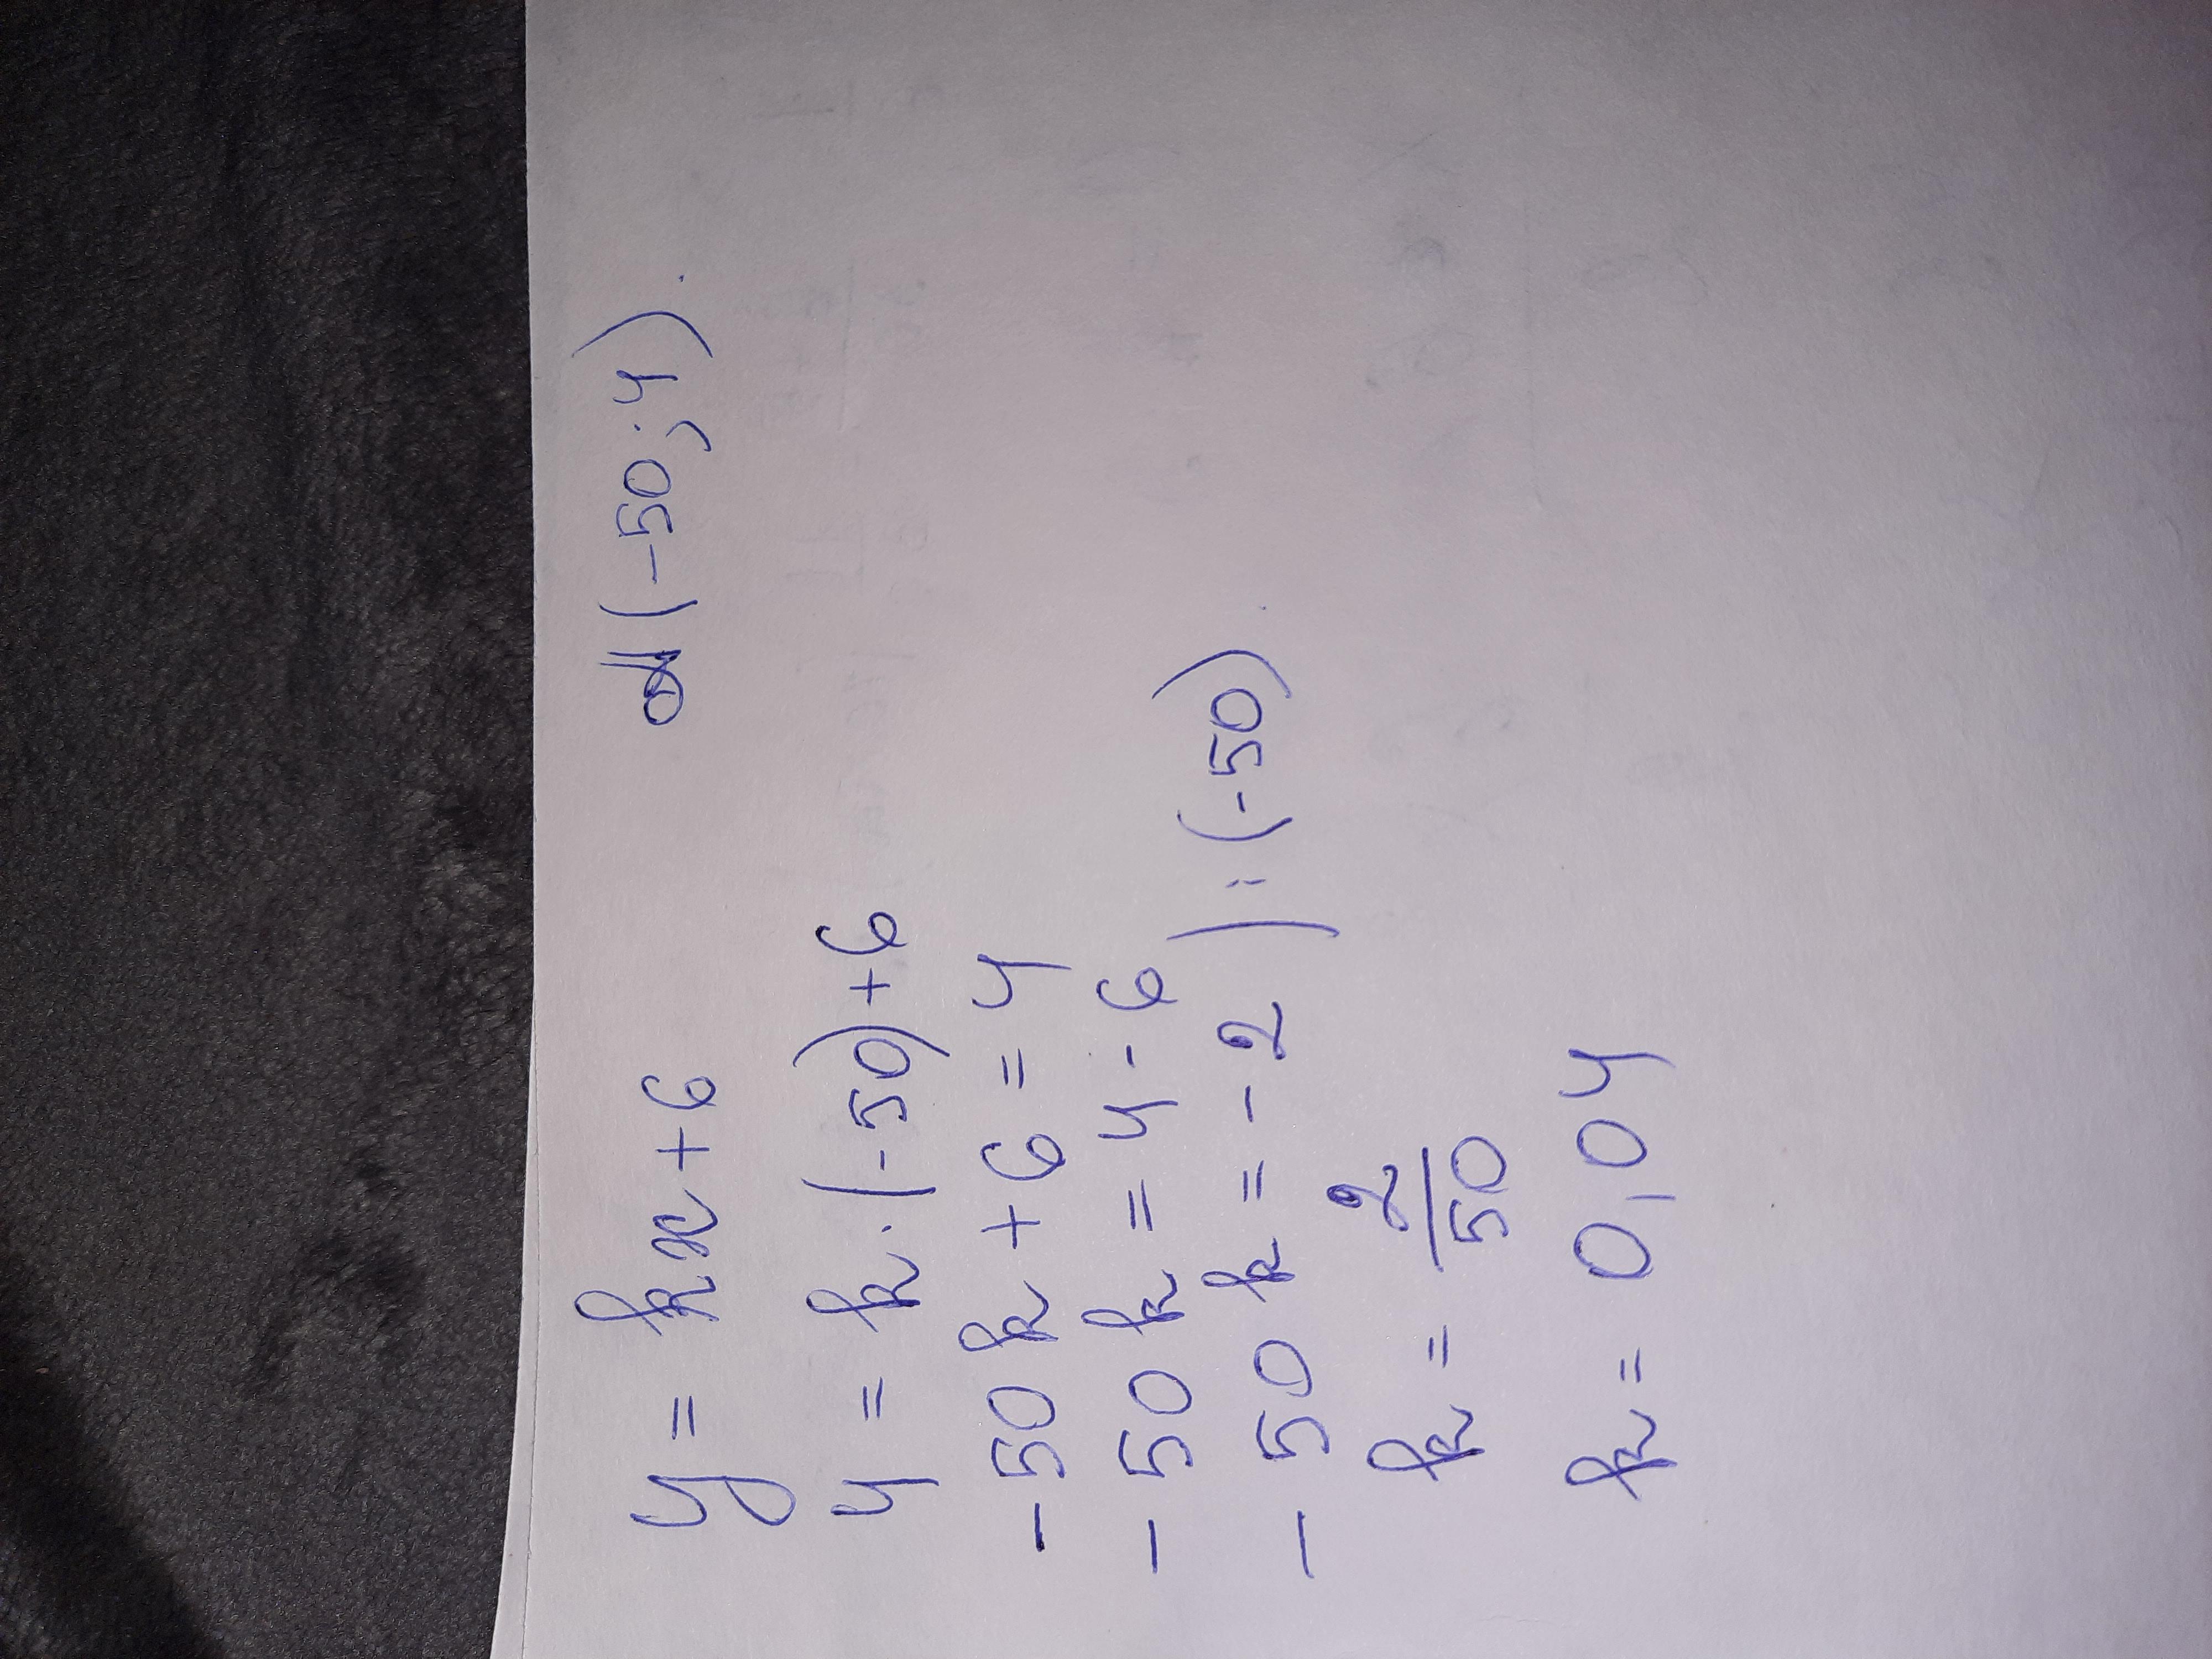 y = kx + 6 A(-50; 4).
4 = k · (-50) + 6
-50 k + 6 = 4
-50 k = 4 - 6
-50 k = -2 | : (-50)
k = 2/50
k = 0,04